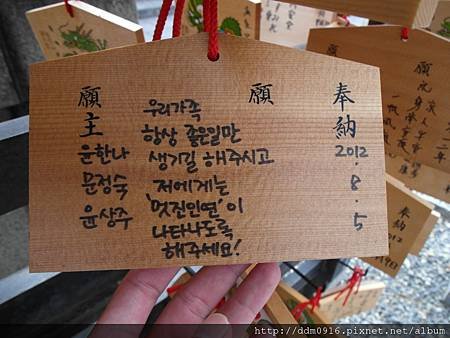 奉納
2012.8.5
願
우리가족
항상 좋은일만
생기길 해주시고
저에게는
'멋진인연'이
나타나도록
해주세요!
願主
윤한나
문정숙
윤상주
奉納
2012
http://ddm0916.pixnet.net/album